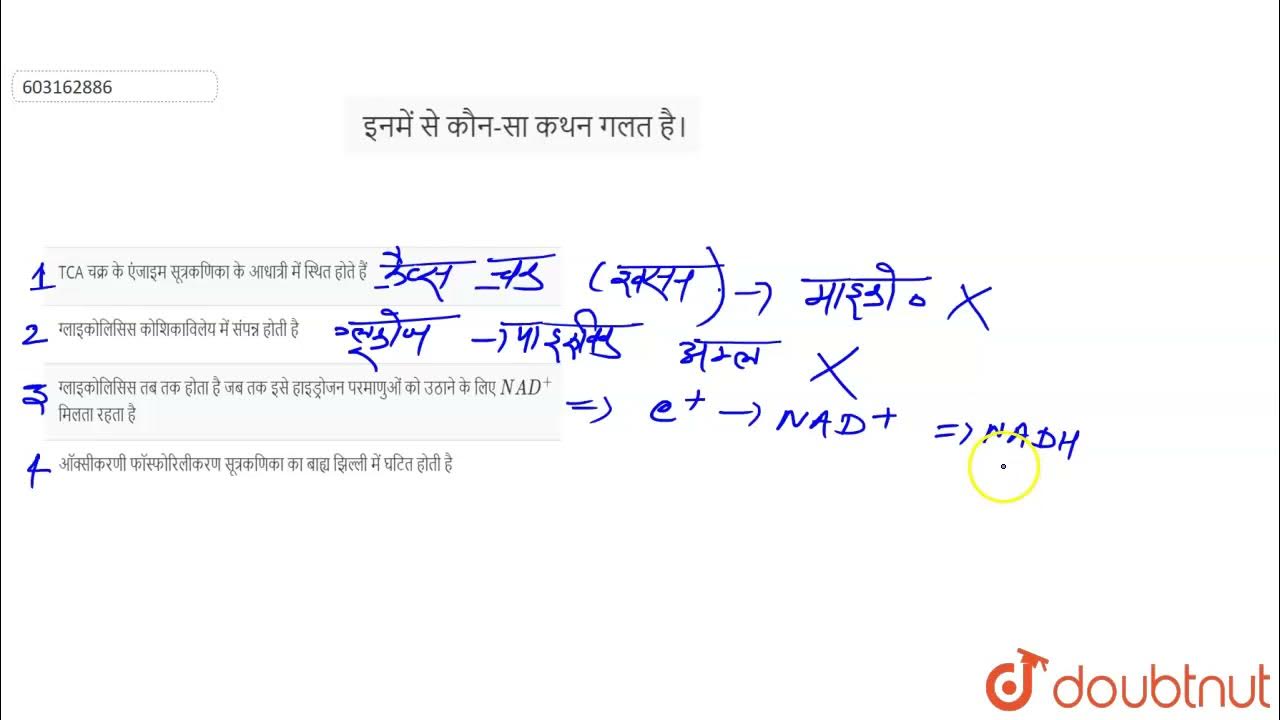 603162886
इनमें से कौन-सा कथन गलत है।
1 TCA चक्र के एंजाइम सूत्रकणिका के आधात्री में स्थित होते हैं क्रैब्स चक्र (श्वसन) → माइटो०
2 ग्लाइकोलिसिस कोशिकाविलेय में संपन्न होती है ग्लूकोज → पाइरुविक अम्ल
3 ग्लाइकोलिसिस तब तक होता है जब तक इसे हाइड्रोजन परमाणुओं को उठाने के लिए NAD⁺
मिलता रहता है ⇒ e⁺ → NAD⁺ ⇒ NADH
4 ऑक्सीकरणी फॉस्फोरिलीकरण सूत्रकणिका का बाह्य झिल्ली में घटित होती है
doubtnut